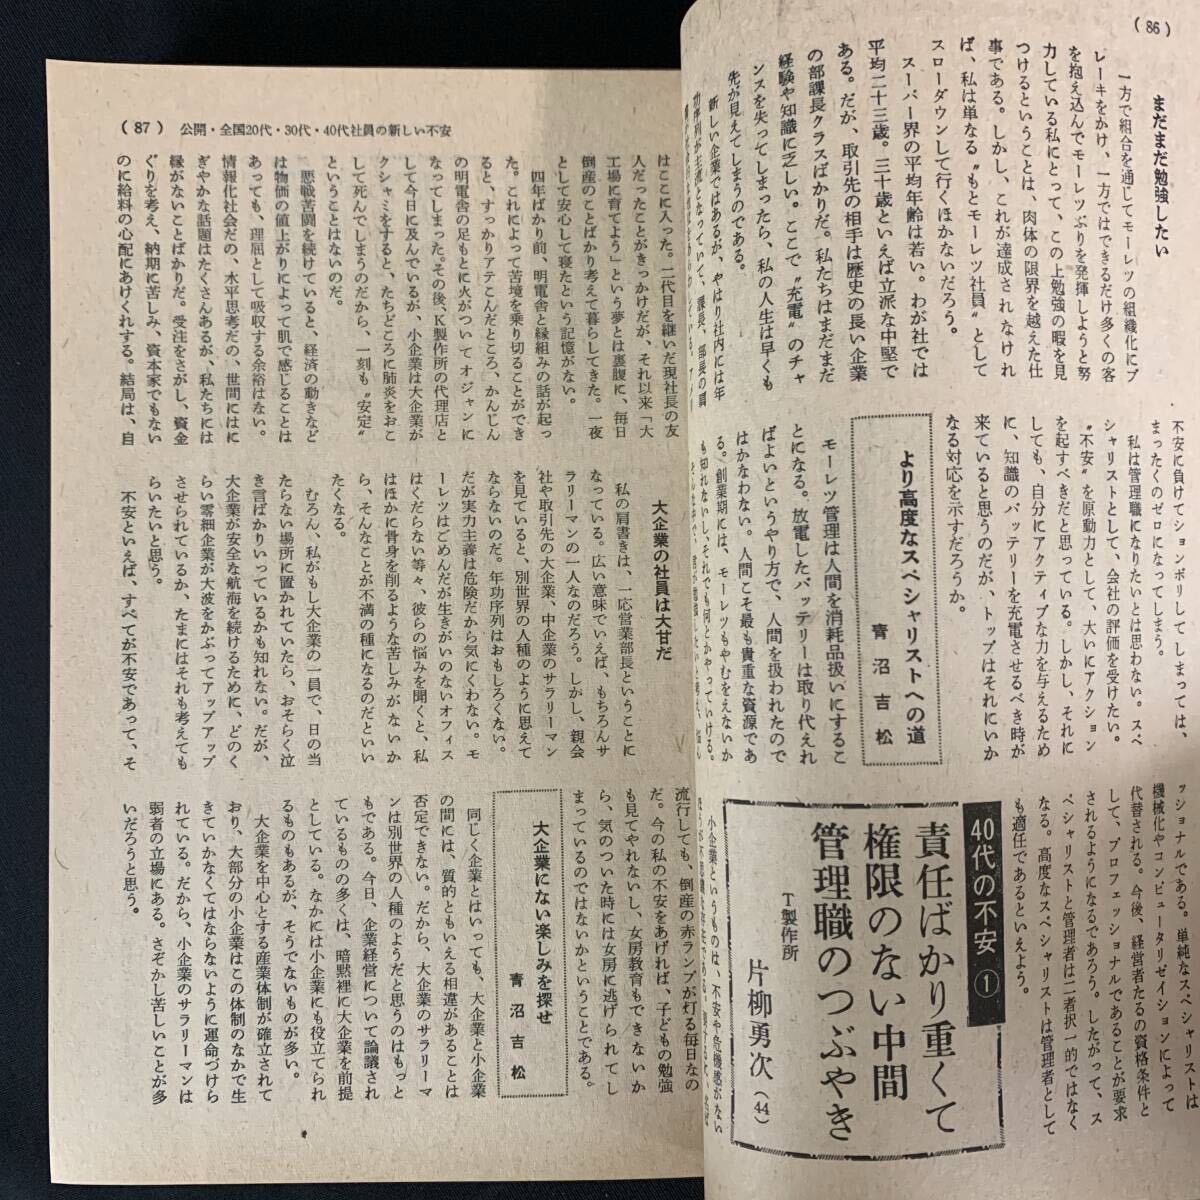 (86)
まだまだ勉強したい
一方で組合を通じてモーレツの組織化にブ
レーキをかけ、一方ではできるだけ多くの客
を抱え込んでモーレツぶりを発揮しようと努
力している私にとって、この上勉強の暇を見
つけるということは、肉体の限界を越えた仕
事である。しかし、これが達成されなけれ
ば、私は単なる〝もとモーレツ社員〟として
スローダウンして行くほかないだろう。
スーパー界の平均年齢は若い。わが社では
平均二十三歳。三十歳といえば立派な中堅で
ある。だが、取引先の相手は歴史の長い企業
の部課長クラスばかりだ。私たちはまだまだ
経験や知識に乏しい。ここで〝充電〟のチャ
ンスを失ってしまったら、私の人生は早くも
先が見えてしまうのである。
新しい企業ではあるが、やはり社内には年
功序列が主流となっていて、課長、部長の肩
不安に負けてションボリしてしまっては、
まったくのゼロになってしまう。
私は管理職になりたいとは思わない。スペ
シャリストとして、会社の評価を受けたい。
〝不安〟を原動力として、大いにアクション
を起すべきだと思っている。しかし、それに
しても、自分にアクティブな力を与えるため
に、知識のバッテリーを充電させるべき時が
来ていると思うのだが、トップはそれにいか
なる対応を示すだろうか。
より高度なスペシャリストへの道
青沼吉松
モーレツ管理は人間を消耗品扱いにするこ
とになる。放電したバッテリーは取り代えれ
ばよいというやり方で、人間を扱われたので
はかなわない。人間こそ最も貴重な資源であ
る。創業期には、モーレツもやむをえないか
も知れないし、それでも何とかやっていける。
ッショナルである。単純なスペシャリストは
機械化やコンピュータリゼイションによって
代替される。今後、経営者たるの資格条件と
して、プロフェッショナルであることが要求
されるようになるであろう。したがって、ス
ペシャリストと管理者は二者択一的ではなく
なる。高度なスペシャリストは管理者として
も適任であるといえよう。
40代の不安①
責任ばかり重くて
権限のない中間
管理職のつぶやき
T製作所
片柳勇次(44)
小企業というものは、不安や危機感がな
(87) 公開・全国20代・30代・40代社員の新しい不安
はここに入った。二代目を継いだ現社長の友
人だったことがきっかけだが、それ以来「大
工場に育てよう」という夢とは裏腹に、毎日
倒産のことばかり考えて暮らしてきた。一夜
として安心して寝たという記憶がない。
四年ばかり前、明電舎と縁組みの話が起っ
た。これによって苦境を乗り切ることができ
ると、すっかりアテこんだところ、かんじん
の明電舎の足もとに火がついてオジャンに
なってしまった。その後、K製作所の代理店と
して今日に及んでいるが、小企業は大企業が
クシャミをすると、たちどころに肺炎をおこ
して死んでしまうのだから、一刻も〝安定〟
ということはないのだ。
悪戦苦闘を続けていると、経済の動きなど
は物価の値上がりによって肌で感じることは
あっても、理屈として吸収する余裕はない。
情報化社会だの、水平思考だの、世間にはに
ぎやかな話題はたくさんあるが、私たちには
縁がないことばかりだ。受注をさがし、資金
ぐりを考え、納期に苦しみ、資本家でもない
のに給料の心配にあけくれする。結局は、自
大企業の社員は大甘だ
私の肩書きは、一応営業部長ということに
なっている。広い意味でいえば、もちろんサ
ラリーマンの一人なのだろう。しかし、親会
社や取引先の大企業、中企業のサラリーマン
を見ていると、別世界の人種のように思えて
ならないのだ。年功序列はおもしろくない。
だが実力主義は危険だから気にくわない。モ
ーレツはごめんだが生きがいのないオフィス
はくだらない等々、彼らの悩みを聞くと、私
はほかに骨身を削るような苦しみがないか
ら、そんなことが不満の種になるのだといい
たくなる。
むろん、私がもし大企業の一員で、日の当
たらない場所に置かれていたら、おそらく泣
き言ばかりいっているかも知れない。だが、
大企業が安全な航海を続けるために、どのく
らい零細企業が大波をかぶってアップアップ
させられているか、たまにはそれも考えても
らいたいと思う。
不安といえば、すべてが不安であって、そ
流行しても、倒産の赤ランプが灯る毎日なの
だ。今の私の不安をあげれば、子どもの勉強
も見てやれないし、女房教育もできないか
ら、気のついた時には女房に逃げられてし
まっているのではないかということである。
大企業にない楽しみを探せ
青沼吉松
同じく企業とはいっても、大企業と小企業
の間には、質的ともいえる相違があることは
否定できない。だから、大企業のサラリーマ
ンは別世界の人種のようだと思うのはもっと
もである。今日、企業経営について論議され
ているものの多くは、暗黙裡に大企業を前提
としている。なかには小企業にも役立てられ
るものもあるが、そうでないものが多い。
大企業を中心とする産業体制が確立されて
おり、大部分の小企業はこの体制のなかで生
きていかなくてはならないように運命づけら
れている。だから、小企業のサラリーマンは
弱者の立場にある。さぞかし苦しいことが多
いだろうと思う。